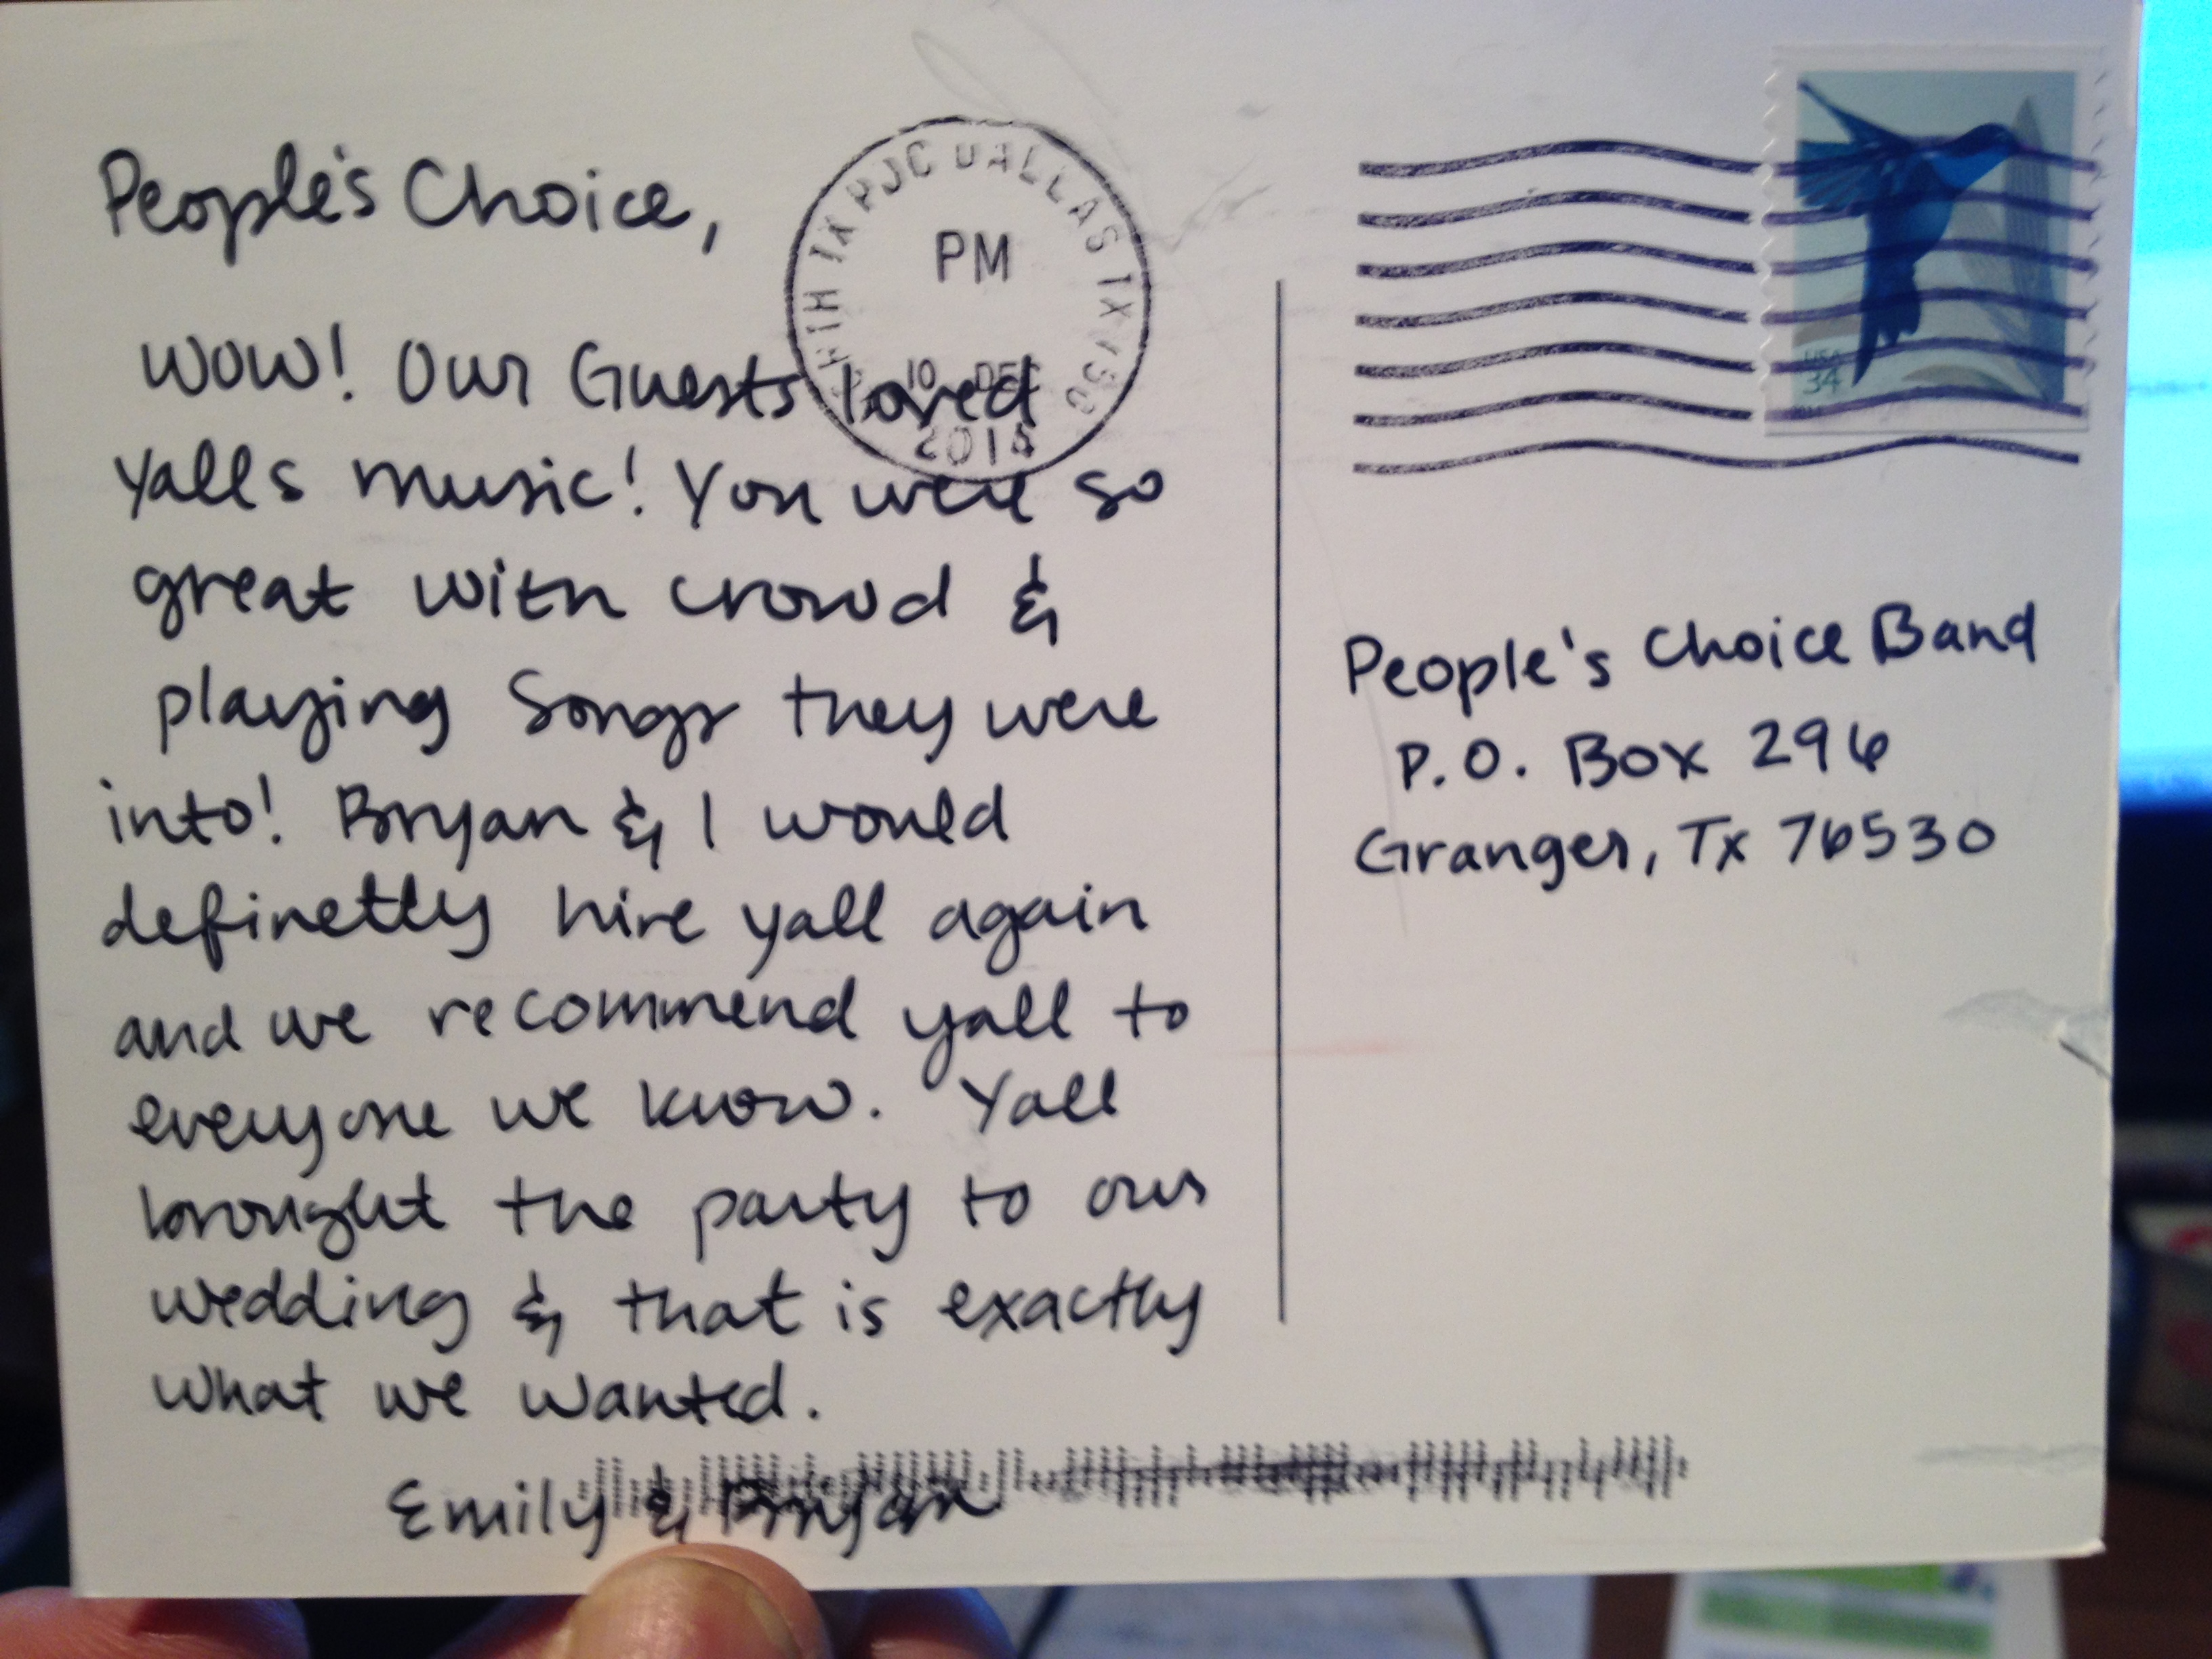 People's Choice,
WOW! Our Guests loved
yalls music! You were so
great with crowd &
playing Songs they were
into! Bryan & I would
definetly hire yall again
and we recommend yall to
everyone we know. Yall
brought the party to our
wedding & that is exactly
what we wanted.
Emily & Bryan
TX PJC DALLAS TX
PM
10 DEC
USA
34
People's Choice Band
P.O. Box 296
Granger, Tx 76530